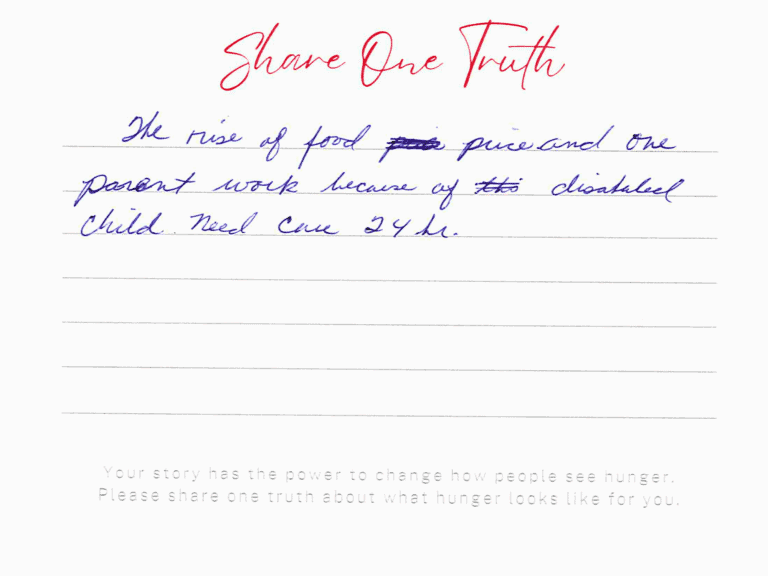 Share One Truth
The rise of food price and one
parent work because of disabaled
child. Need care 24 hr.
Your story has the power to change how people see hunger.
Please share one truth about what hunger looks like for you.